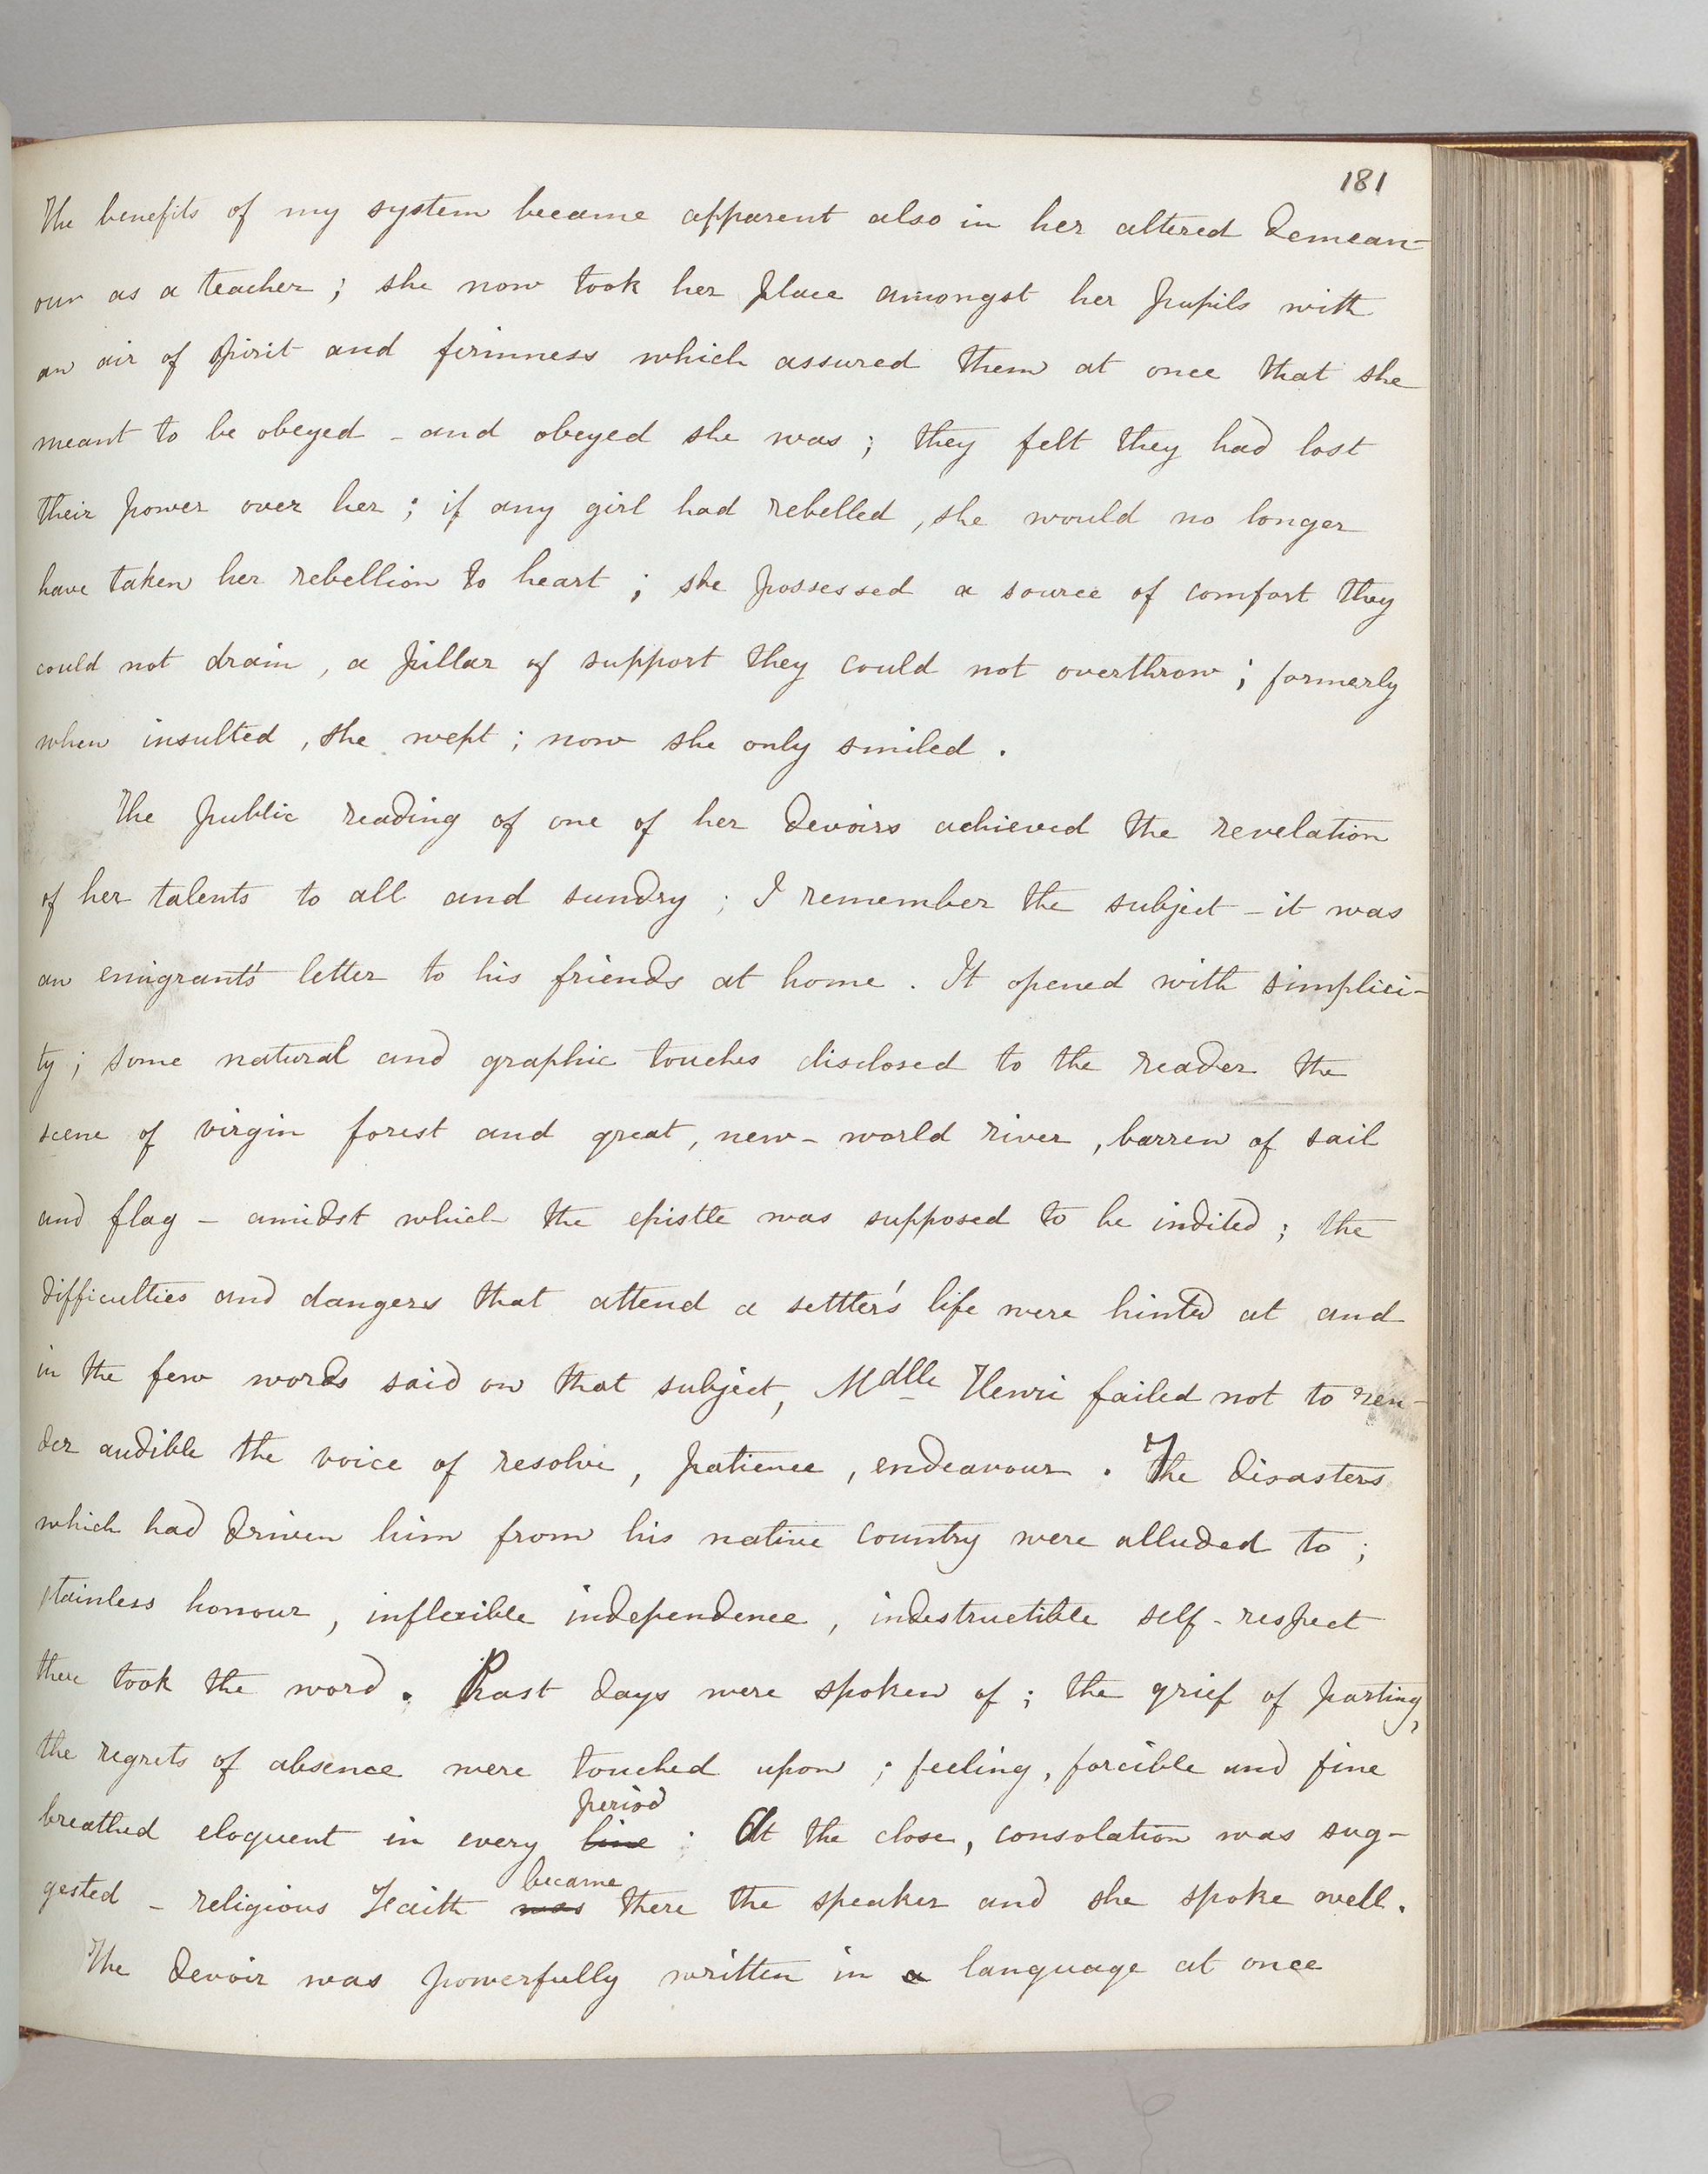 181
The benefits of my system became apparent also in her altered demean-
our as a teacher ; she now took her place amongst her pupils with
an air of spirit and firmness which assured them at once that she
meant to be obeyed - and obeyed she was ; they felt they had lost
their power over her ; if any girl had rebelled , she would no longer
have taken her rebellion to heart ; she possessed a source of comfort they
could not drain , a pillar of support they could not overthrow ; formerly
when insulted , she wept ; now she only smiled .
The public reading of one of her devoirs achieved the revelation
of her talents to all and sundry ; I remember the subject - it was
an emigrant's letter to his friends at home . It opened with simplici-
ty ; some natural and graphic touches disclosed to the reader the
scene of virgin forest and great, new-world river , barren of sail
and flag - amidst which the epistle was supposed to be indited ; the
difficulties and dangers that attend a settler's life were hinted at and
in the few words said on that subject, Mdlle Henri failed not to ren-
der audible the voice of resolve , patience , endeavour . The disasters
which had driven him from his native country were alluded to ;
stainless honour , inflexible independence , indestructible self-respect
there took the word . Past days were spoken of ; the grief of parting,
the regrets of absence were touched upon ; feeling , forcible and fine
period
breathed eloquent in every line . At the close, consolation was sug-
became
gested - religious Faith was there the speaker and she spoke well .
The devoir was powerfully written in a language at once